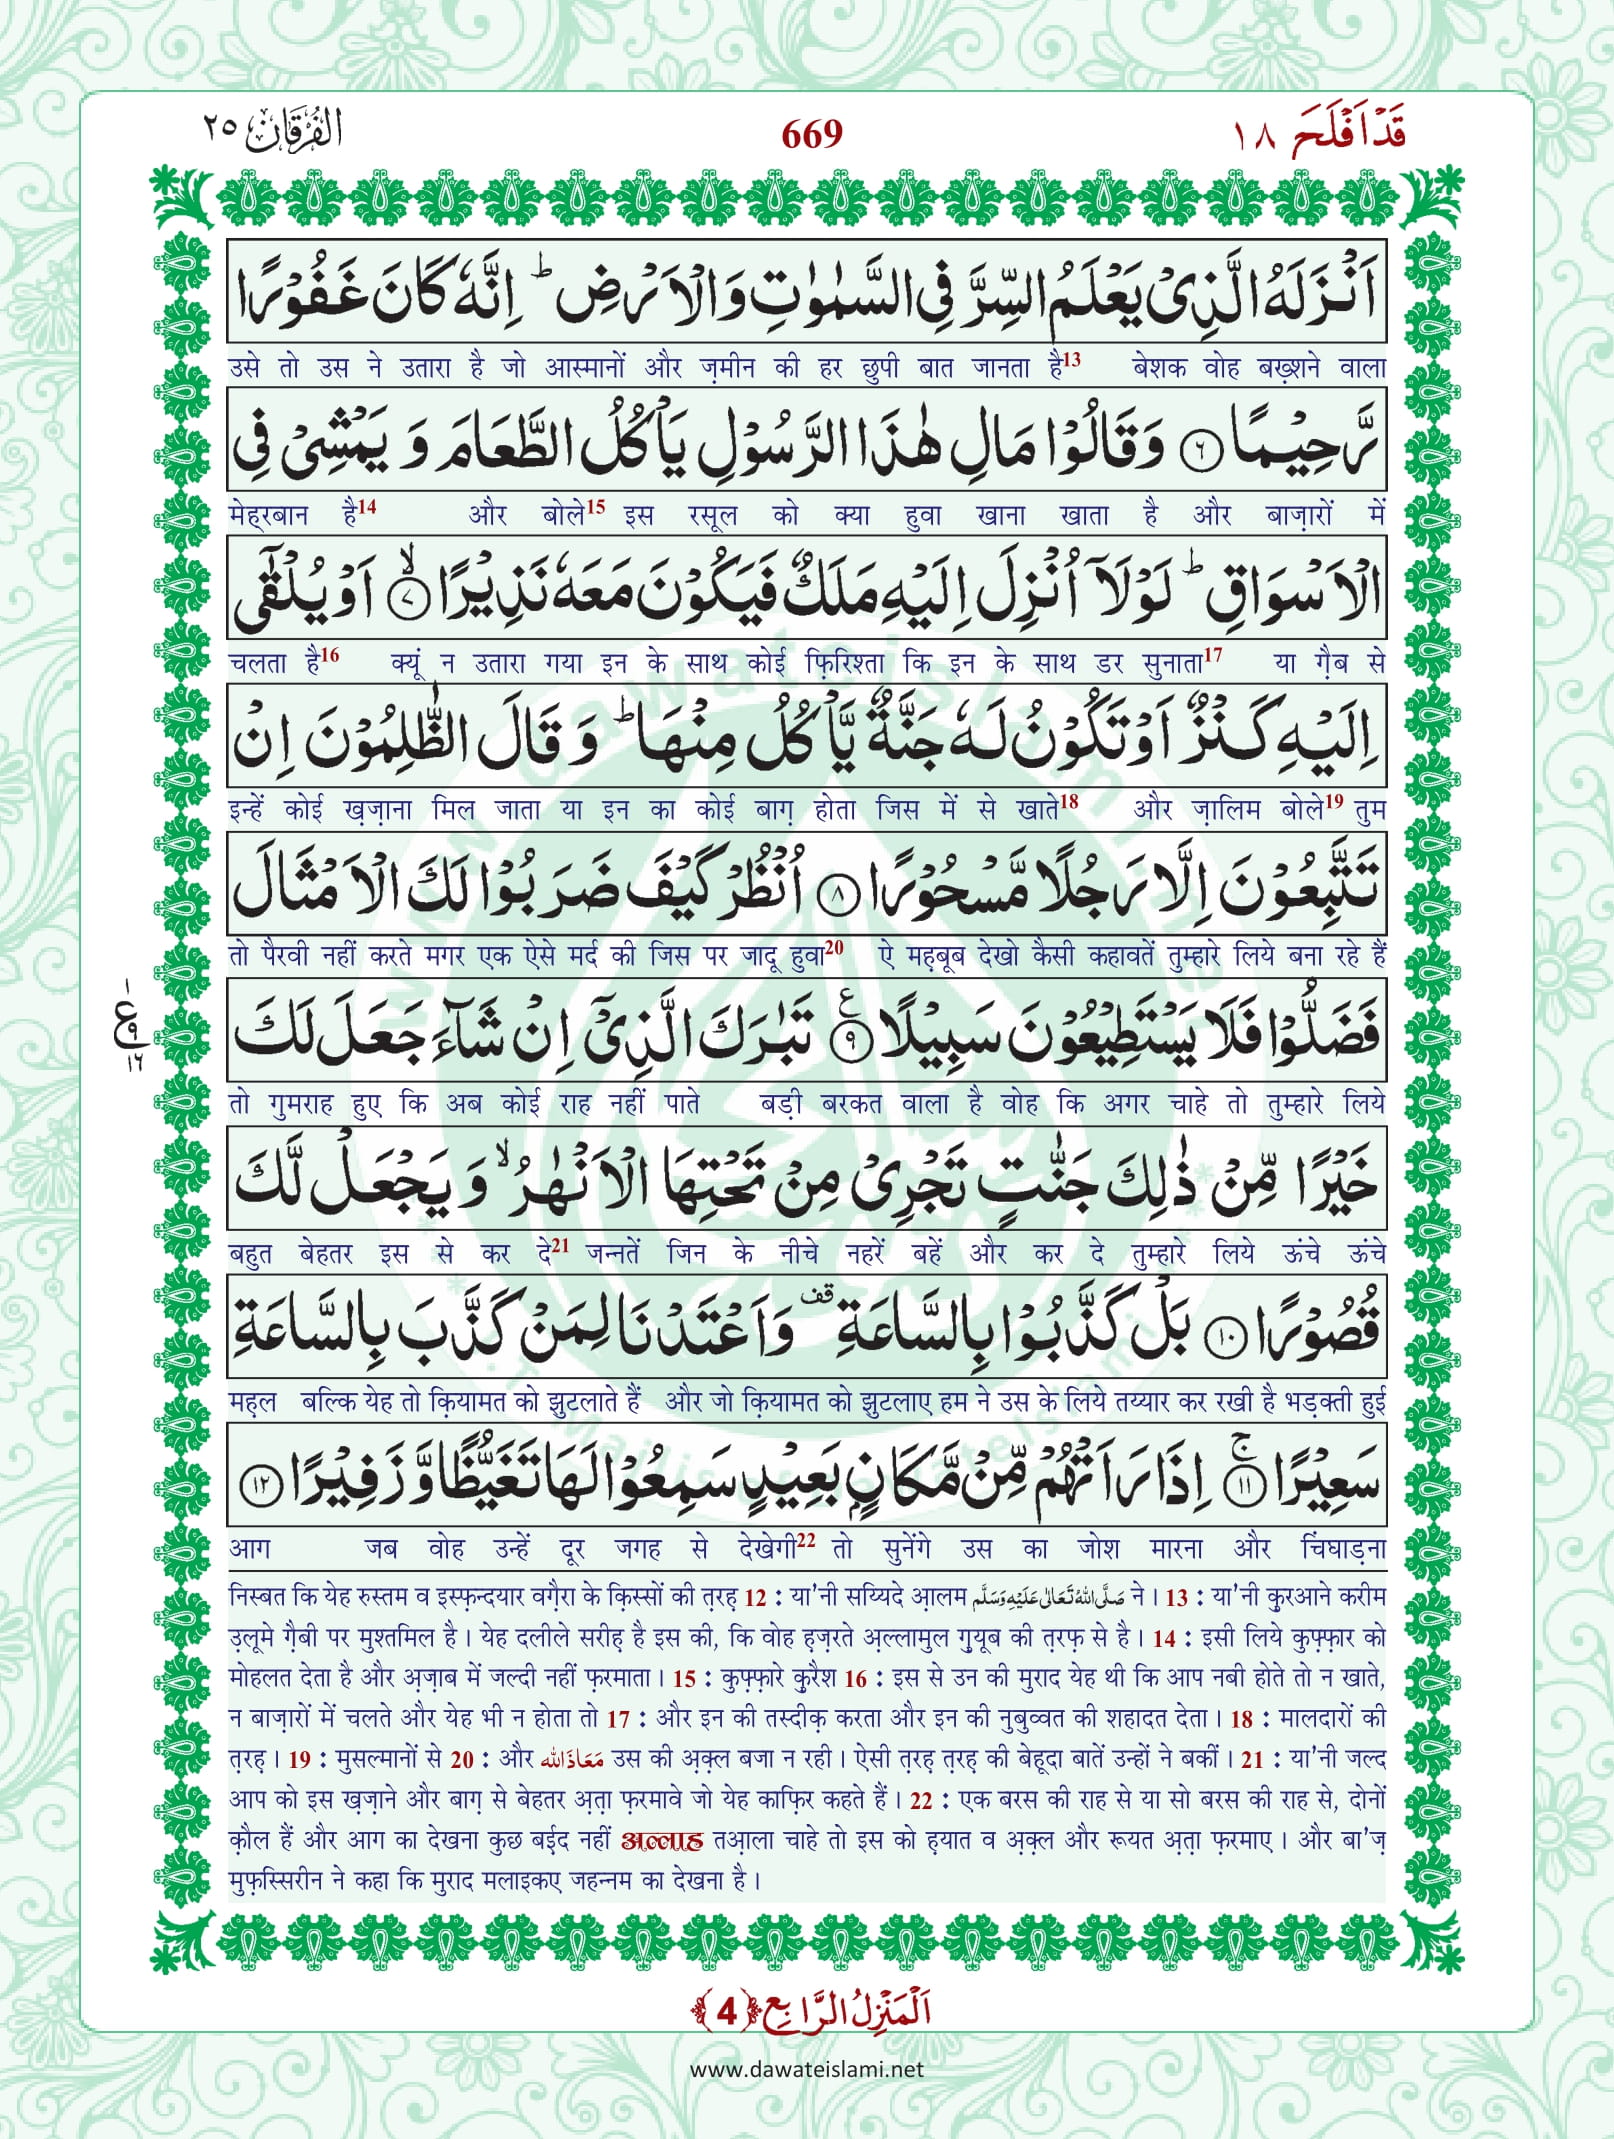 الفُرقان ٢٥
669
قَدْ اَفْلَحَ ١٨
اَنْزَلَهُ الَّذِیْ یَعْلَمُ السِّرَّ فِی السَّمٰوٰتِ وَ الْاَرْضِ ؕ اِنَّهٗ كَانَ غَفُوْرًا
उसे तो उस ने उतारा है जो आस्मानों और ज़मीन की हर छुपी बात जानता है13 बेशक वोह बख़्शने वाला
رَّحِیْمًا ۝۶ وَ قَالُوْا مَالِ هٰذَا الرَّسُوْلِ یَاْكُلُ الطَّعَامَ وَ یَمْشِیْ فِی
मेह्‌रबान है14 और बोले15 इस रसूल को क्या हुवा खाना खाता है और बाज़ारों में
الْاَسْوَاقِ ؕ لَوْلَاۤ اُنْزِلَ اِلَیْهِ مَلَكٌ فَیَكُوْنَ مَعَهٗ نَذِیْرًا ۙ۝۷ اَوْ یُلْقٰۤى
चलता है16 क्यूं न उतारा गया इन के साथ कोई फ़िरिश्ता कि इन के साथ डर सुनाता17 या ग़ैब से
اِلَیْهِ كَنْزٌ اَوْ تَكُوْنُ لَهٗ جَنَّةٌ یَّاْكُلُ مِنْهَا ؕ وَ قَالَ الظّٰلِمُوْنَ اِنْ
इन्हें कोई ख़ज़ाना मिल जाता या इन का कोई बाग़ होता जिस में से खाते18 और ज़ालिम बोले19 तुम
تَتَّبِعُوْنَ اِلَّا رَجُلًا مَّسْحُوْرًا ۝۸ اُنْظُرْ كَیْفَ ضَرَبُوْا لَكَ الْاَمْثَالَ
तो पैरवी नहीं करते मगर एक ऐसे मर्द की जिस पर जादू हुवा20 ऐ मह़बूब देखो कैसी कहावतें तुम्हारे लिये बना रहे हैं
فَضَلُّوْا فَلَا یَسْتَطِیْعُوْنَ سَبِیْلًا ۠۝۹ تَبٰرَكَ الَّذِیْۤ اِنْ شَآءَ جَعَلَ لَكَ
١ ع ٩ ١٦
तो गुमराह हुए कि अब कोई राह नहीं पाते बड़ी बरकत वाला है वोह कि अगर चाहे तो तुम्हारे लिये
خَیْرًا مِّنْ ذٰلِكَ جَنّٰتٍ تَجْرِیْ مِنْ تَحْتِهَا الْاَنْهٰرُ ۙ وَ یَجْعَلْ لَّكَ
बहुत बेहतर इस से कर दे21 जन्नतें जिन के नीचे नहरें बहें और कर दे तुम्हारे लिये ऊंचे ऊंचे
قُصُوْرًا ۝۱۰ بَلْ كَذَّبُوْا بِالسَّاعَةِ ۫ وَ اَعْتَدْنَا لِمَنْ كَذَّبَ بِالسَّاعَةِ
मह़ल बल्कि येह तो क़ियामत को झुटलाते हैं और जो क़ियामत को झुटलाए हम ने उस के लिये तय्यार कर रखी है भड़क्ती हुई
سَعِیْرًا ۚ۝۱۱ اِذَا رَاَتْهُمْ مِّنْ مَّكَانٍۭ بَعِیْدٍ سَمِعُوْا لَهَا تَغَیُّظًا وَّ زَفِیْرًا ۝۱۲
आग जब वोह उन्हें दूर जगह से देखेगी22 तो सुनेंगे उस का जोश मारना और चिंघाड़ना
निस्बत कि येह रुस्तम व इस्फ़न्दयार वग़ैरा के क़िस्सों की त़रह़ 12 : या'नी सय्यिदे आ़लम صَلَّی اللّٰهُ تَعَالٰی عَلَیْهِ وَسَلَّم ने। 13 : या'नी क़ुरआने करीम
उ़लूमे ग़ैबी पर मुश्तमिल है। येह दलीले सरीह़ है इस की, कि वोह ह़ज़रते अ़ल्लामुल ग़ुयूब की त़रफ़ से है। 14 : इसी लिये कुफ़्फ़ार को
मोहलत देता है और अ़ज़ाब में जल्दी नहीं फ़रमाता। 15 : कुफ़्फ़ारे क़ुरैश 16 : इस से उन की मुराद येह थी कि आप नबी होते तो न खाते,
न बाज़ारों में चलते और येह भी न होता तो 17 : और इन की तस्दीक़ करता और इन की नुबुव्वत की शहादत देता। 18 : मालदारों की
त़रह़। 19 : मुसल्मानों से 20 : और مَعَاذَ اللّٰه उस की अ़क़्ल बजा न रही। ऐसी त़रह़ त़रह़ की बेहूदा बातें उन्हों ने बकीं। 21 : या'नी जल्द
आप को इस ख़ज़ाने और बाग़ से बेहतर अ़त़ा फ़रमावे जो येह काफ़िर कहते हैं। 22 : एक बरस की राह से या सो बरस की राह से, दोनों
क़ौल हैं और आग का देखना कुछ बई़द नहीं अल्लाह तआ़ला चाहे तो इस को ह़यात व अ़क़्ल और रूयत अ़त़ा फ़रमाए। और बा'ज़
मुफ़स्सिरीन ने कहा कि मुराद मलाइकए जहन्नम का देखना है।
اَلْمَنْزِلُ الرَّابِع ﴿4﴾
www.dawateislami.net